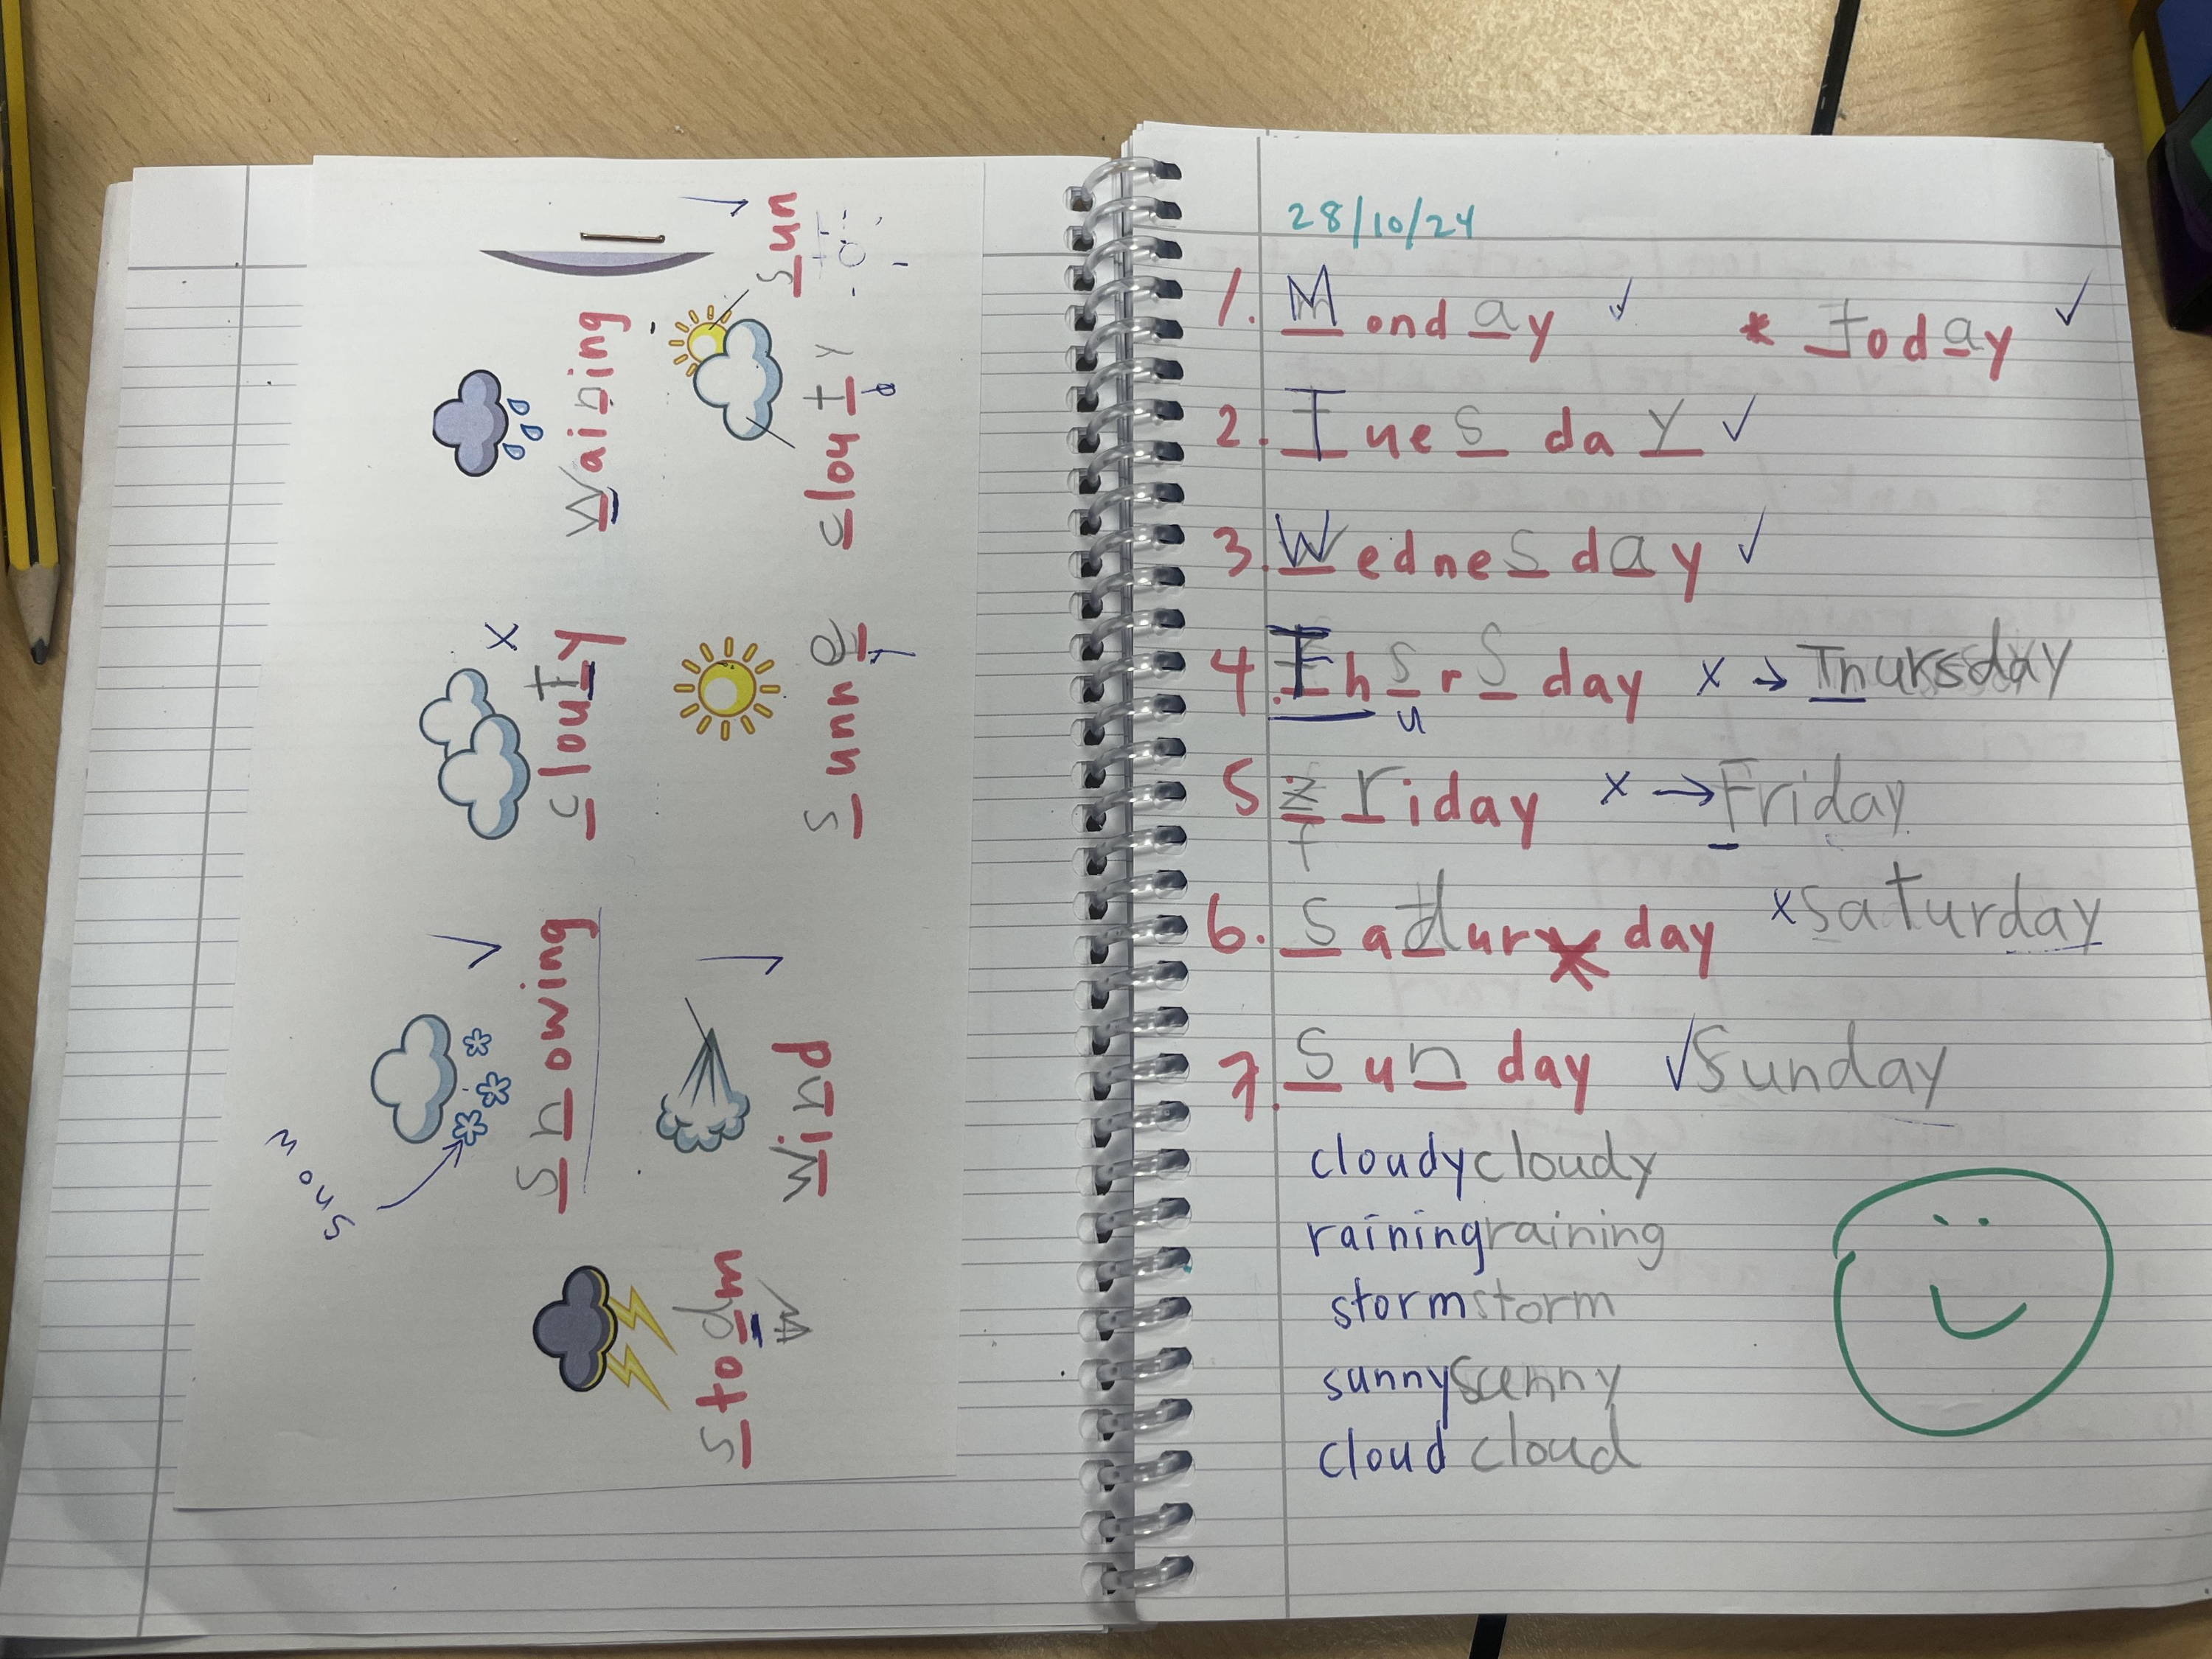 sun
waining
clouty
d
clouty
sunne
y
snowing
snow
wind
stodm
28/10/24
1. Monday * Today
2. Tuesday
3. Wednesday
4. Thsrsday x → Thursday
u
5 zriday x → Friday
f
6. Sadur day x saturday
7. Sunday Sunday
cloudy cloudy
raining raining
storm storm
sunny sunny
cloud cloud